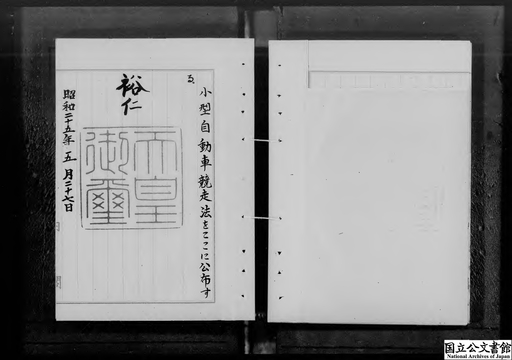 小型自動車競走法をここに公布する
裕仁
天皇
御璽
昭和二十五年五月二十七日
国立公文書館
National Archives of Japan